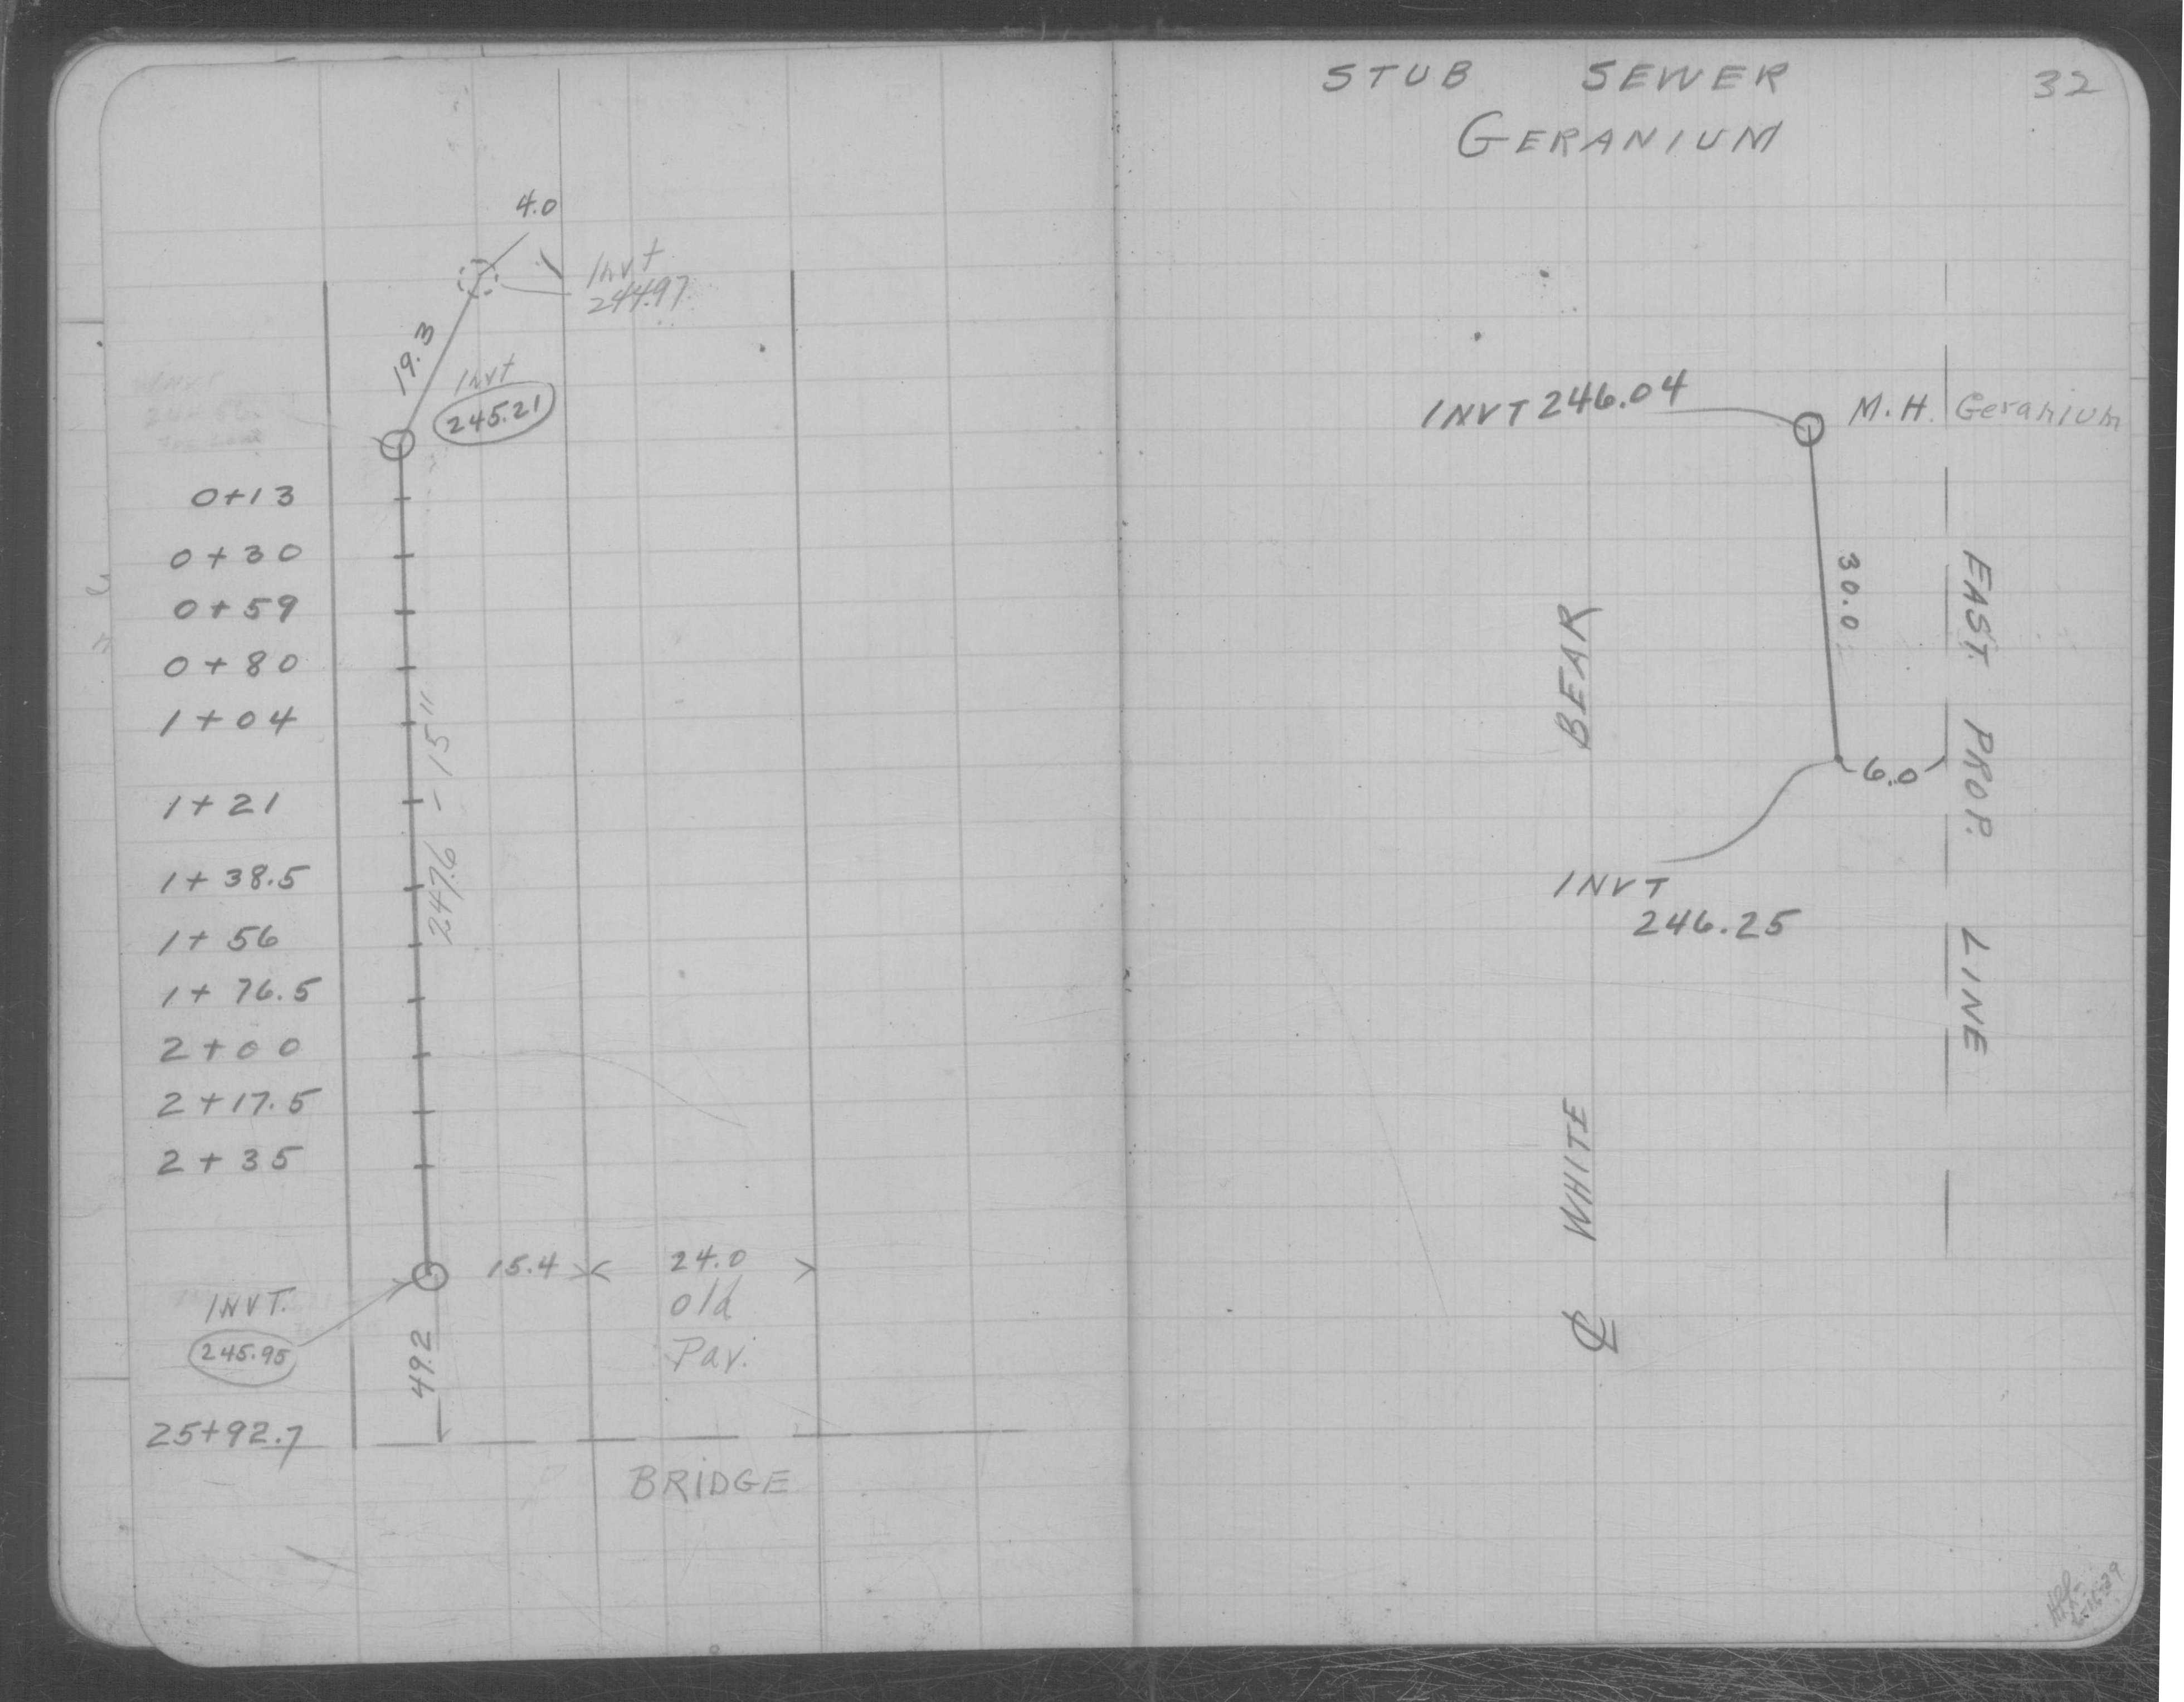 4.0
Invt
244.97
19.3
Invt
245.21
0+13
0+30
0+59
0+80
1+04
1+21
1+38.5
1+56
1+76.5
2+00
2+17.5
2+35
247.6 - 15"
15.4
24.0
old
Pav.
INVT.
245.95
49.2
25+92.7
BRIDGE
STUB SEWER
32
GERANIUM
INVT 246.04
M.H. Geranium
30.0
6.0
INVT
246.25
EAST. PROP. LINE
℄ WHITE BEAR